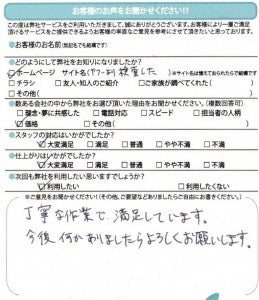 お客様のお声をお聞かせください!!
この度は弊社サービスをご利用いただきまして、誠にありがとうございます。お客様により一層ご満足
頂けるサービスをご提供できるようお客様の率直なご意見を参考にさせて頂きたいと思っております。
●お客様のお名前(無記名でも結構です)
●どのようにして弊社をお知りになりましたか?
☑ホームページ サイト名( 検索した )※サイト名は憶えておられたらで結構です
□チラシ □友人・知人のご紹介 □ご家族が調べてくれた( )
□その他( )
●数ある会社の中から弊社をお選び頂いた理由をお聞かせください。(複数回答可)
□理念・夢に共感した □電話対応 □スピード □担当者の人柄
☑価格 □その他( )
●スタッフの対応はいかがでしたか?
☑大変満足 □満足 □普通 □やや不満 □不満
●仕上がりはいかがでしたか?
☑大変満足 □満足 □普通 □やや不満 □不満
●次回も弊社を利用したい思いますでしょうか?
☑利用したい □利用したくない
※ご意見をお聞かせください!(その他、ご要望などありましたらご自由にお書きください)
丁寧な作業で、満足しています。
今後何かありましたらよろしくお願いします。